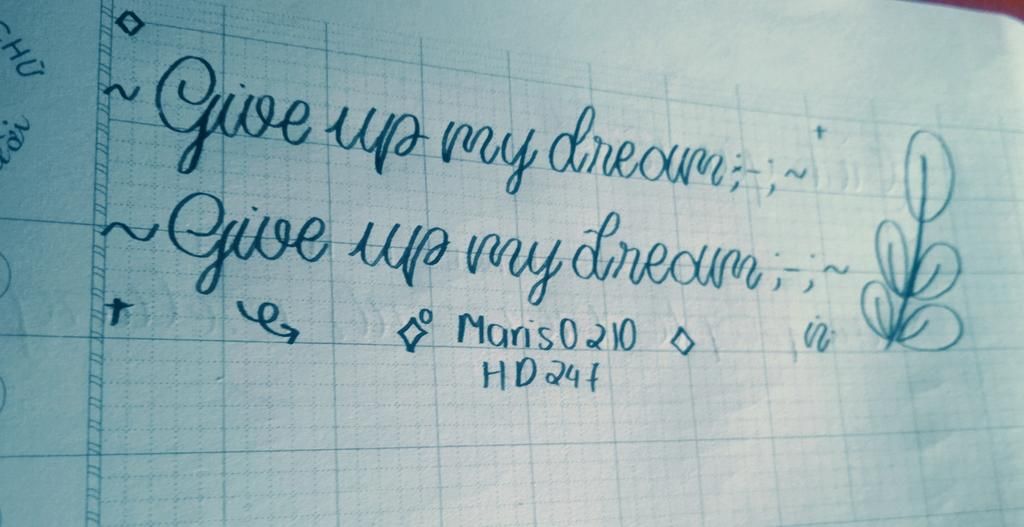 CHỮ
~ Give up my dream ;-; ~
~ Give up my dream ;-; ~
Maris0210
HD24f